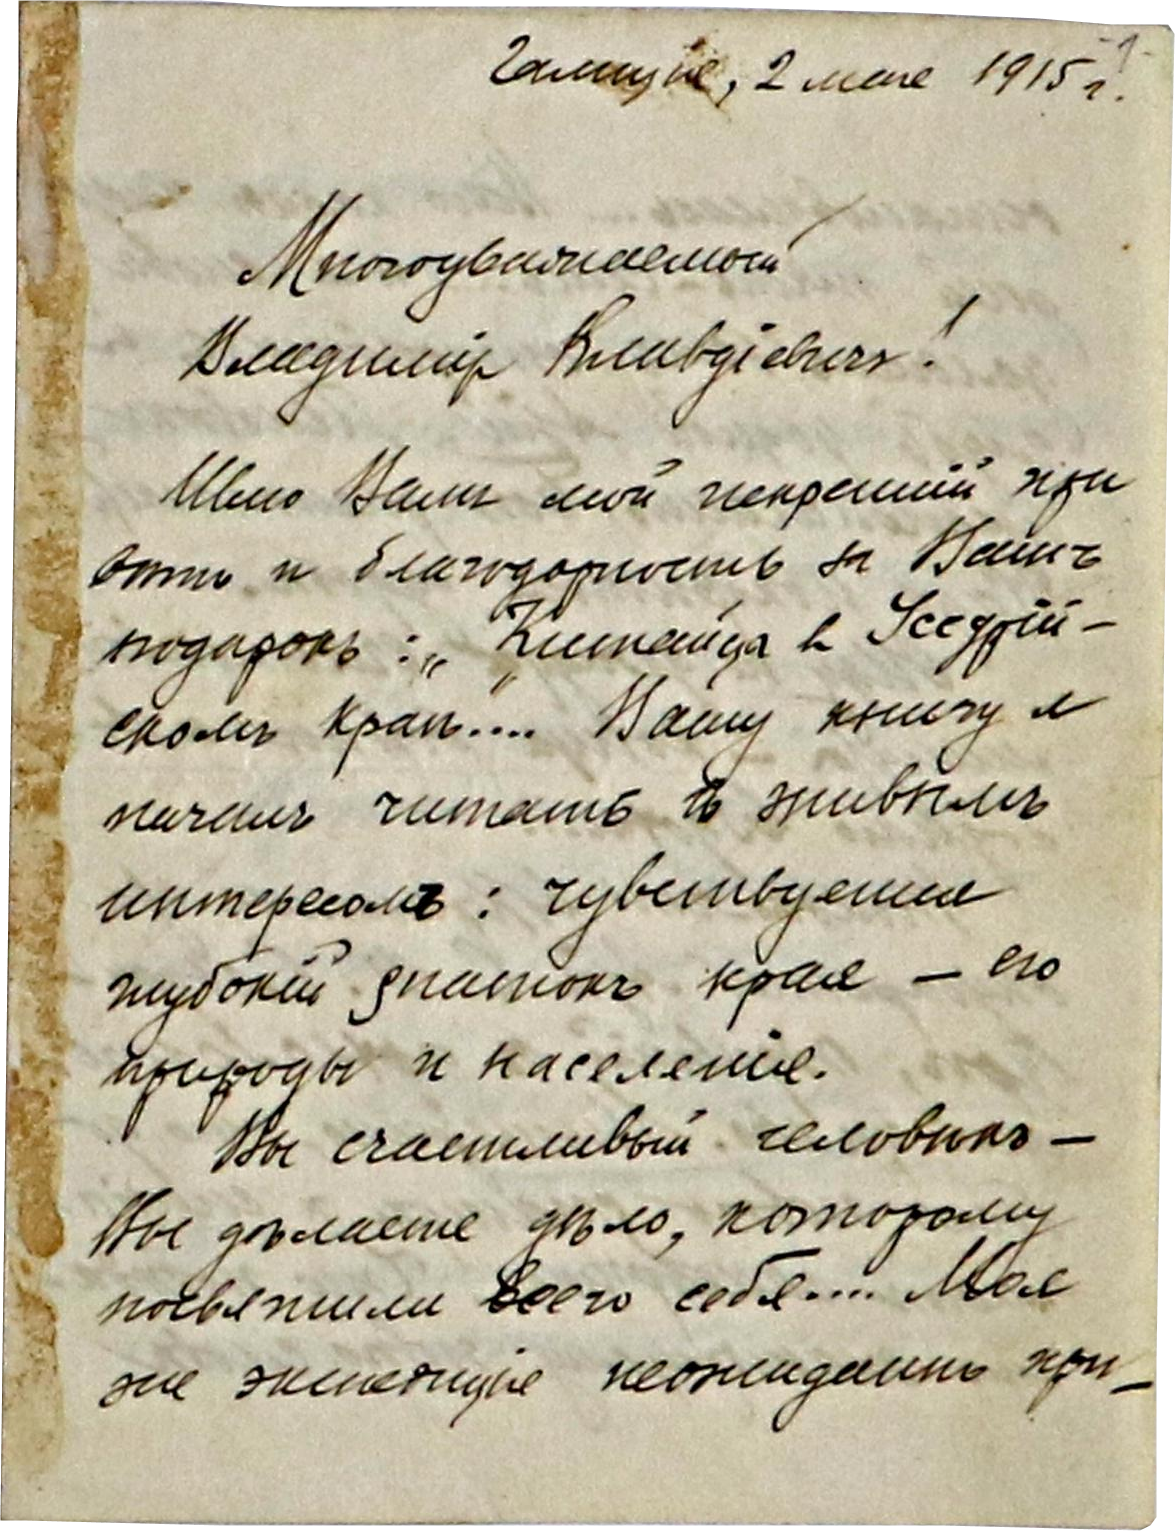 Галиція, 2 мая 1915 г.
Многоуважаемый
Владиміръ Клавдіевичъ!
Шлю Вамъ мой искренній при
вѣтъ и благодарность за Вашъ
подарокъ: „Китайцы в Уссурій-
скомъ краѣ.... Вашу книгу я
началъ читать съ живымъ
интересомъ: чувствуется
глубокій знатокъ края – его
природы и населенія.
Вы счастливый человѣкъ –
Вы дѣлаете дѣло, которому
посвятили всего себя.... Моя
же экспедиція неожиданно при-